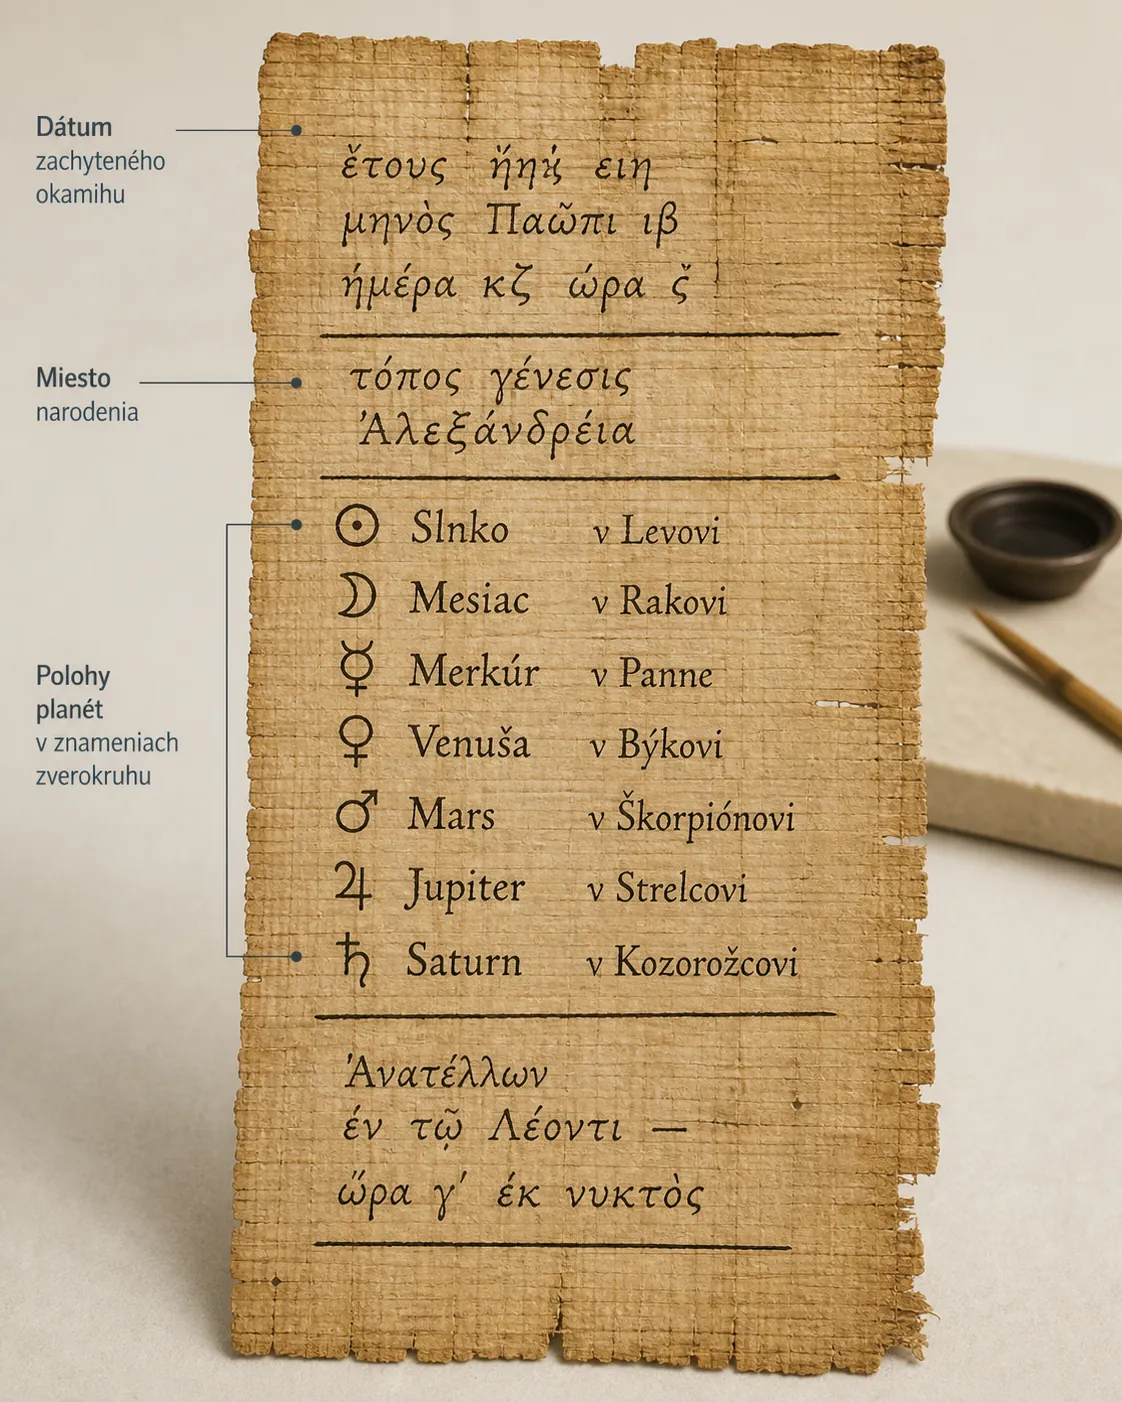 Dátum
zachyteného
okamihu
ἔτους ειη
μηνὸς Παῶπι ιβ
ἡμέρα κζ ώρα
Miesto
narodenia
τόπος γένεσις
Ἀλεξάνδρέια
Polohy
planét
v znameniach
zverokruhu
☉ Slnko v Levovi
☽ Mesiac v Rakovi
☿ Merkúr v Panne
♀ Venuša v Býkovi
♂ Mars v Škorpiónovi
♃ Jupiter v Strelcovi
♄ Saturn v Kozorožcovi
Ἀνατέλλων
έν τῷ Λέοντι —
ὥρα γʹ έκ νυκτὸς